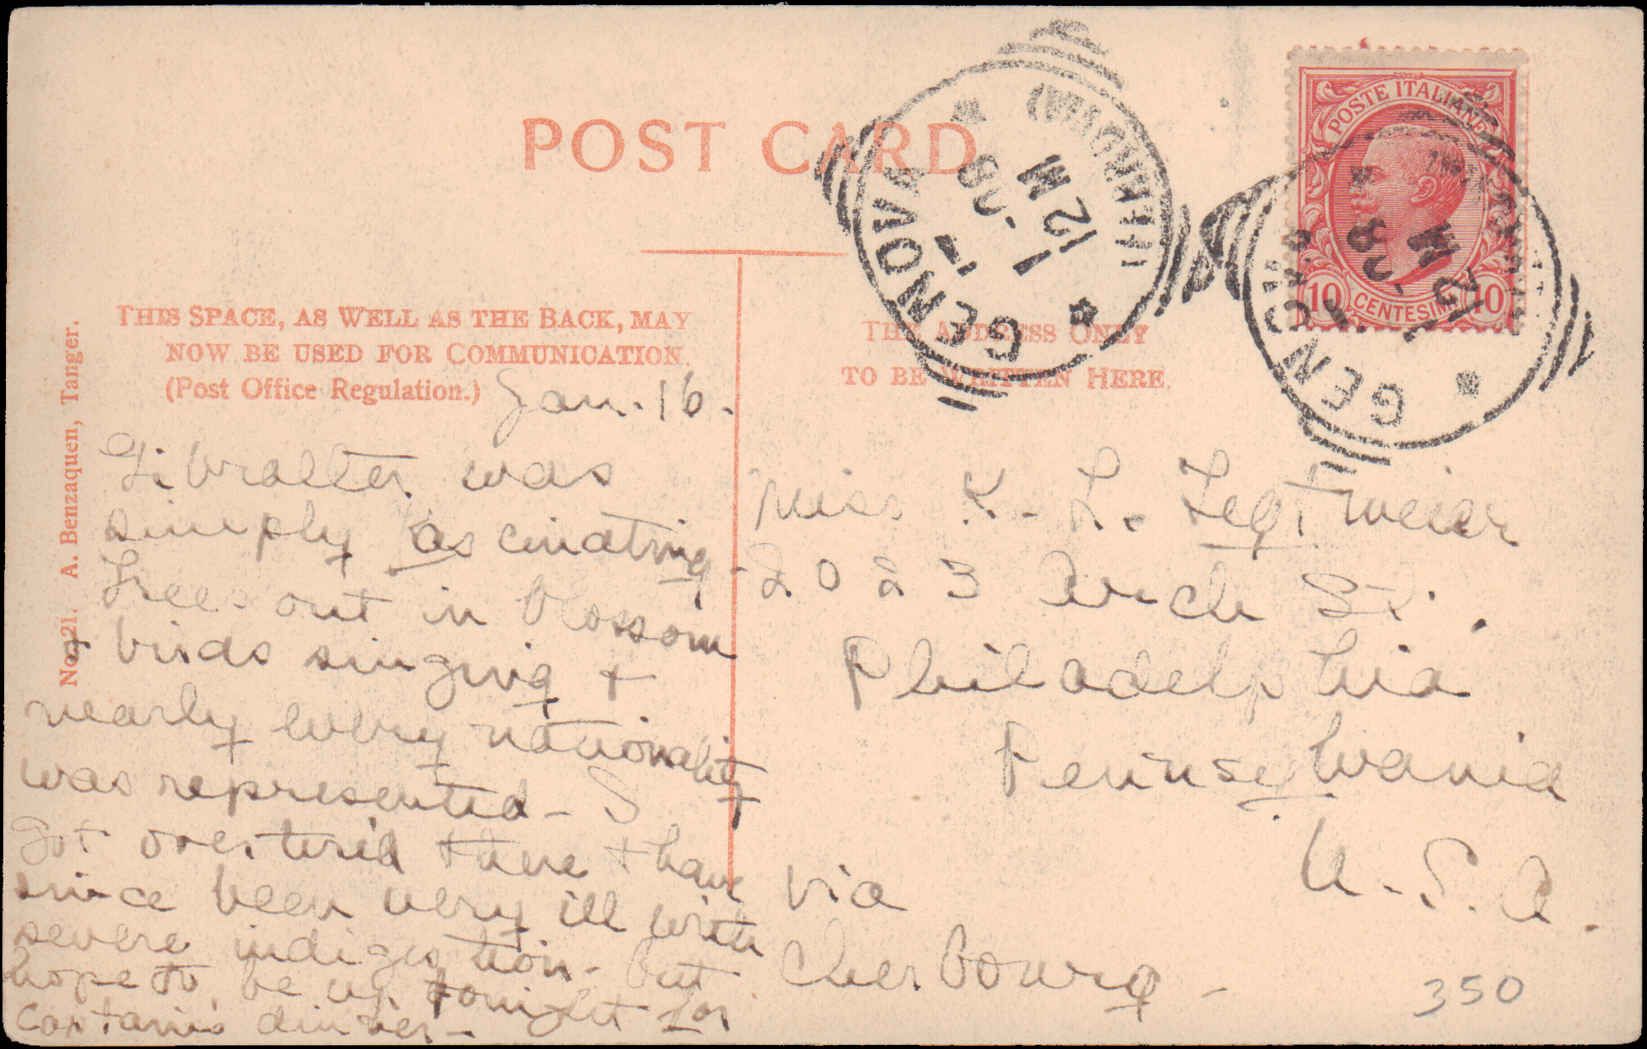 POST CARD
THIS SPACE, AS WELL AS THE BACK, MAY
NOW BE USED FOR COMMUNICATION.
(Post Office Regulation.)
THE ADDRESS ONLY
TO BE WRITTEN HERE
No. 21. A. Benzaquen, Tanger.
POSTE ITALIANE
10 CENTESIMI 10
GENOVA
1 - 08
12 M
GENOVA
1 - 08
12 M
Jan. 16.
Gibralter was
simply fascinating
Trees out in blossom
+ birds singing +
nearly every nationality
was represented - I
got overtired there + have
since been very ill with
severe indigestion - but
hope to be up tonight for
Captain's dinner -
Miss K. L.
2023 Arch St.
Philadelphia
Pennsylvania
U.S.A.
via
Cherbourg -
350